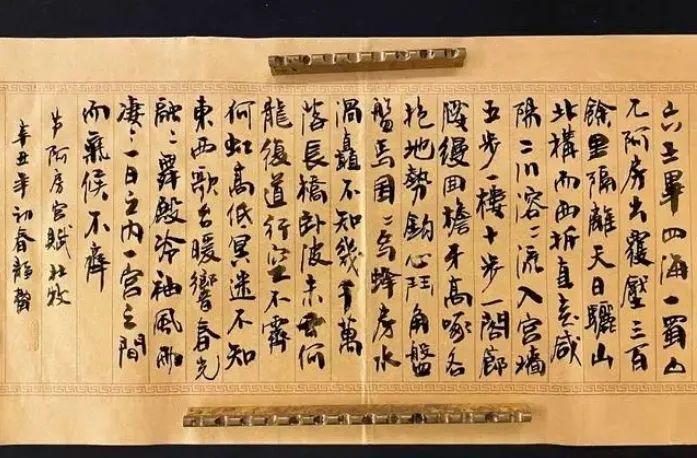 六王畢四海一蜀山
兀阿房出覆壓三百
餘里隔離天日驪山
北構而西折直走咸
陽二川溶〻流入宮墻
五步一樓十步一閣廊
腰縵回檐牙高啄各
抱地勢鈎心鬥角盤
盤焉囷〻焉蜂房水
渦矗不知幾千萬
落長橋臥波未雲何
龍復道行空不霽
何虹高低冥迷不知
東西歌台暖響春光
融〻舞殿冷袖風雨
淒〻一日之内一宮之間
而氣候不齊
节阿房宮賦杜牧
辛丑年初春